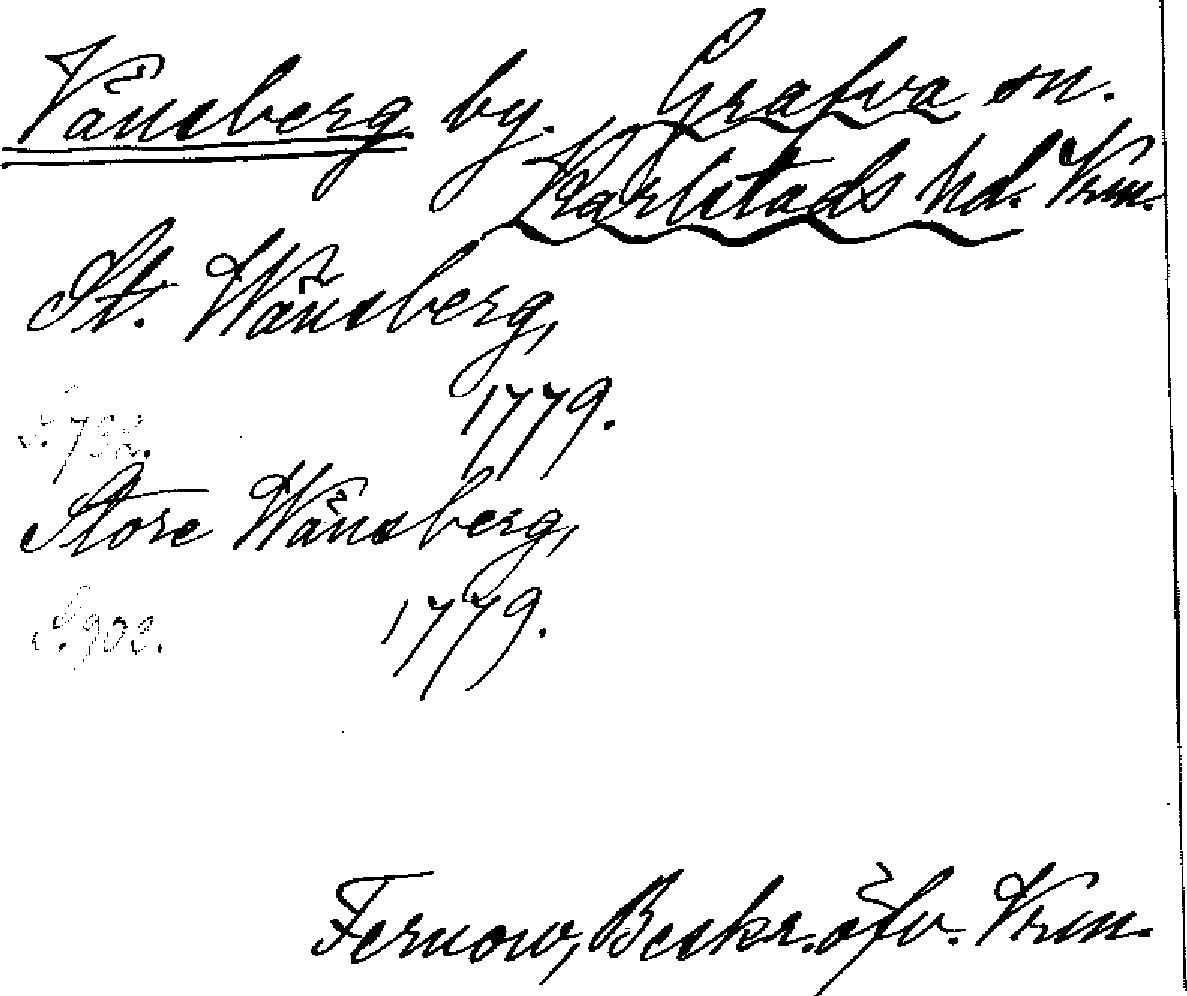 Vänsberg by. Grafva sn.
Karlstads hd. Vrm.
St. Wänsberg,
1779.
S. 732.
Store Wänsberg,
1779.
S. 902.
Fernow, Beskr. öfv. Vrm.